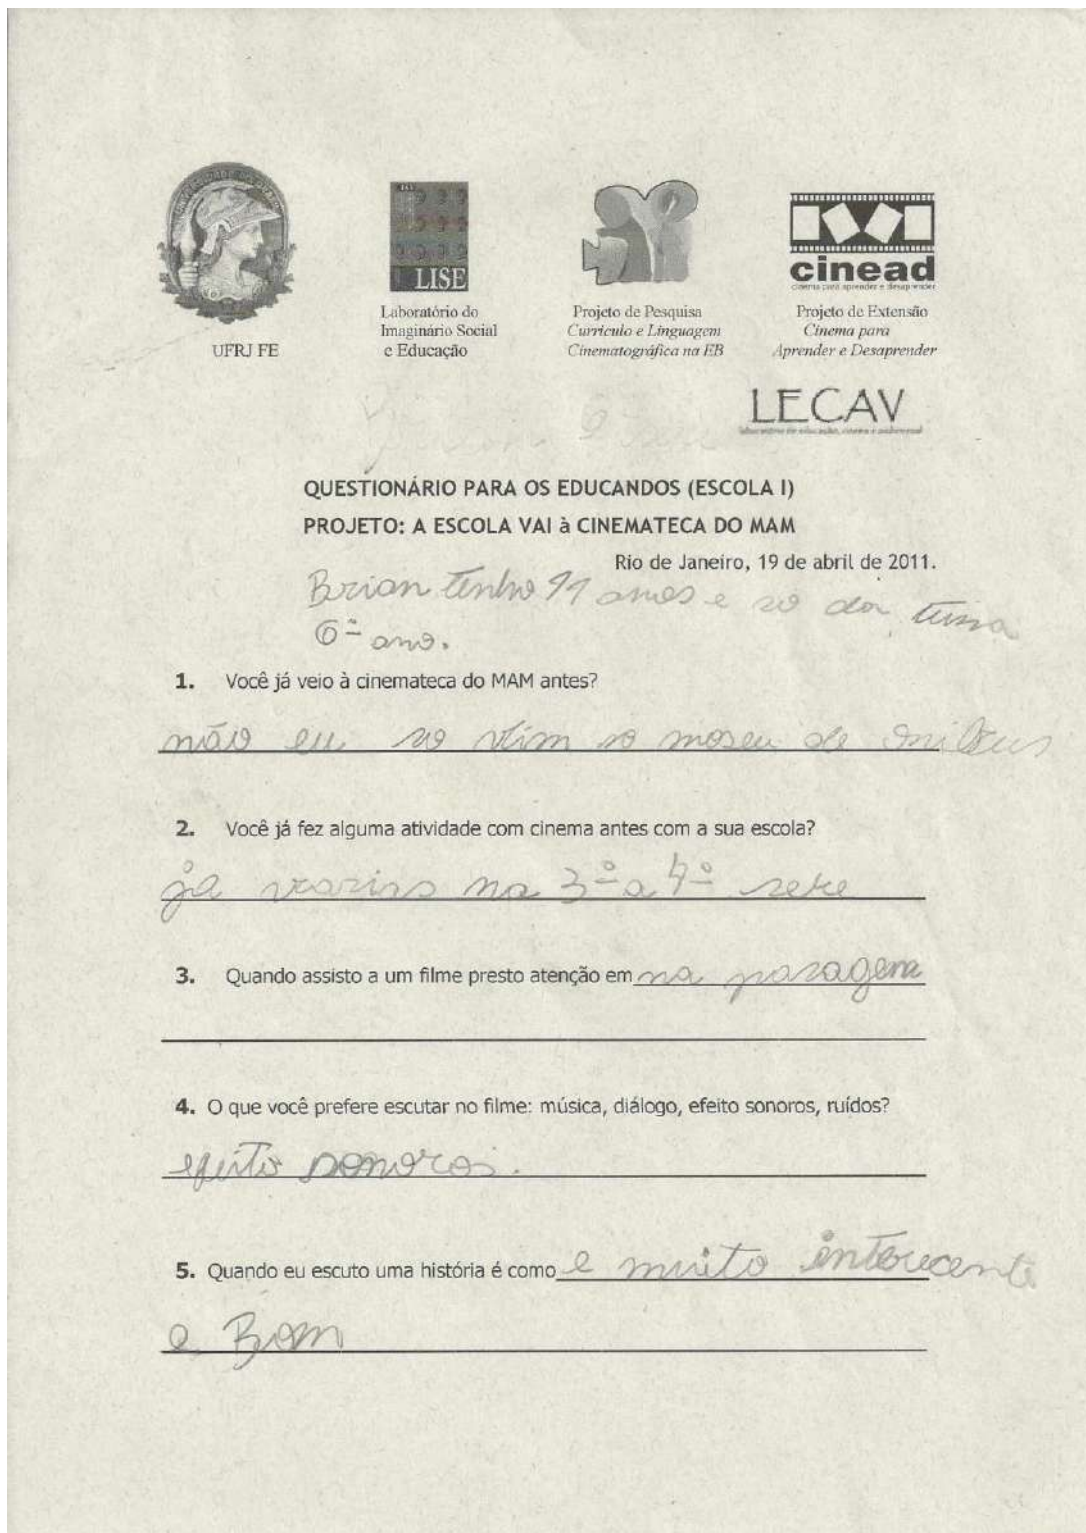 UNIVERSIDADE DO BRASIL
LISE
cinead
cinema para aprender e desaprender
UFRJ FE
Laboratório do
Imaginário Social
e Educação
Projeto de Pesquisa
Currículo e Linguagem
Cinematográfica na EB
Projeto de Extensão
Cinema para
Aprender e Desaprender
LECAV
laboratório de educação, cinema e audiovisual
QUESTIONÁRIO PARA OS EDUCANDOS (ESCOLA I)
PROJETO: A ESCOLA VAI à CINEMATECA DO MAM
Rio de Janeiro, 19 de abril de 2011.
Brian tenho 11 anos e so da tursa
6º ano.
1. Você já veio à cinemateca do MAM antes?
não eu so vim no moseu de
2. Você já fez alguma atividade com cinema antes com a sua escola?
ja varias na 3º a 4º sere
3. Quando assisto a um filme presto atenção em na pasagem
4. O que você prefere escutar no filme: música, diálogo, efeito sonoros, ruídos?
efeito sonoros.
5. Quando eu escuto uma história é como e muito interecente
e Bom